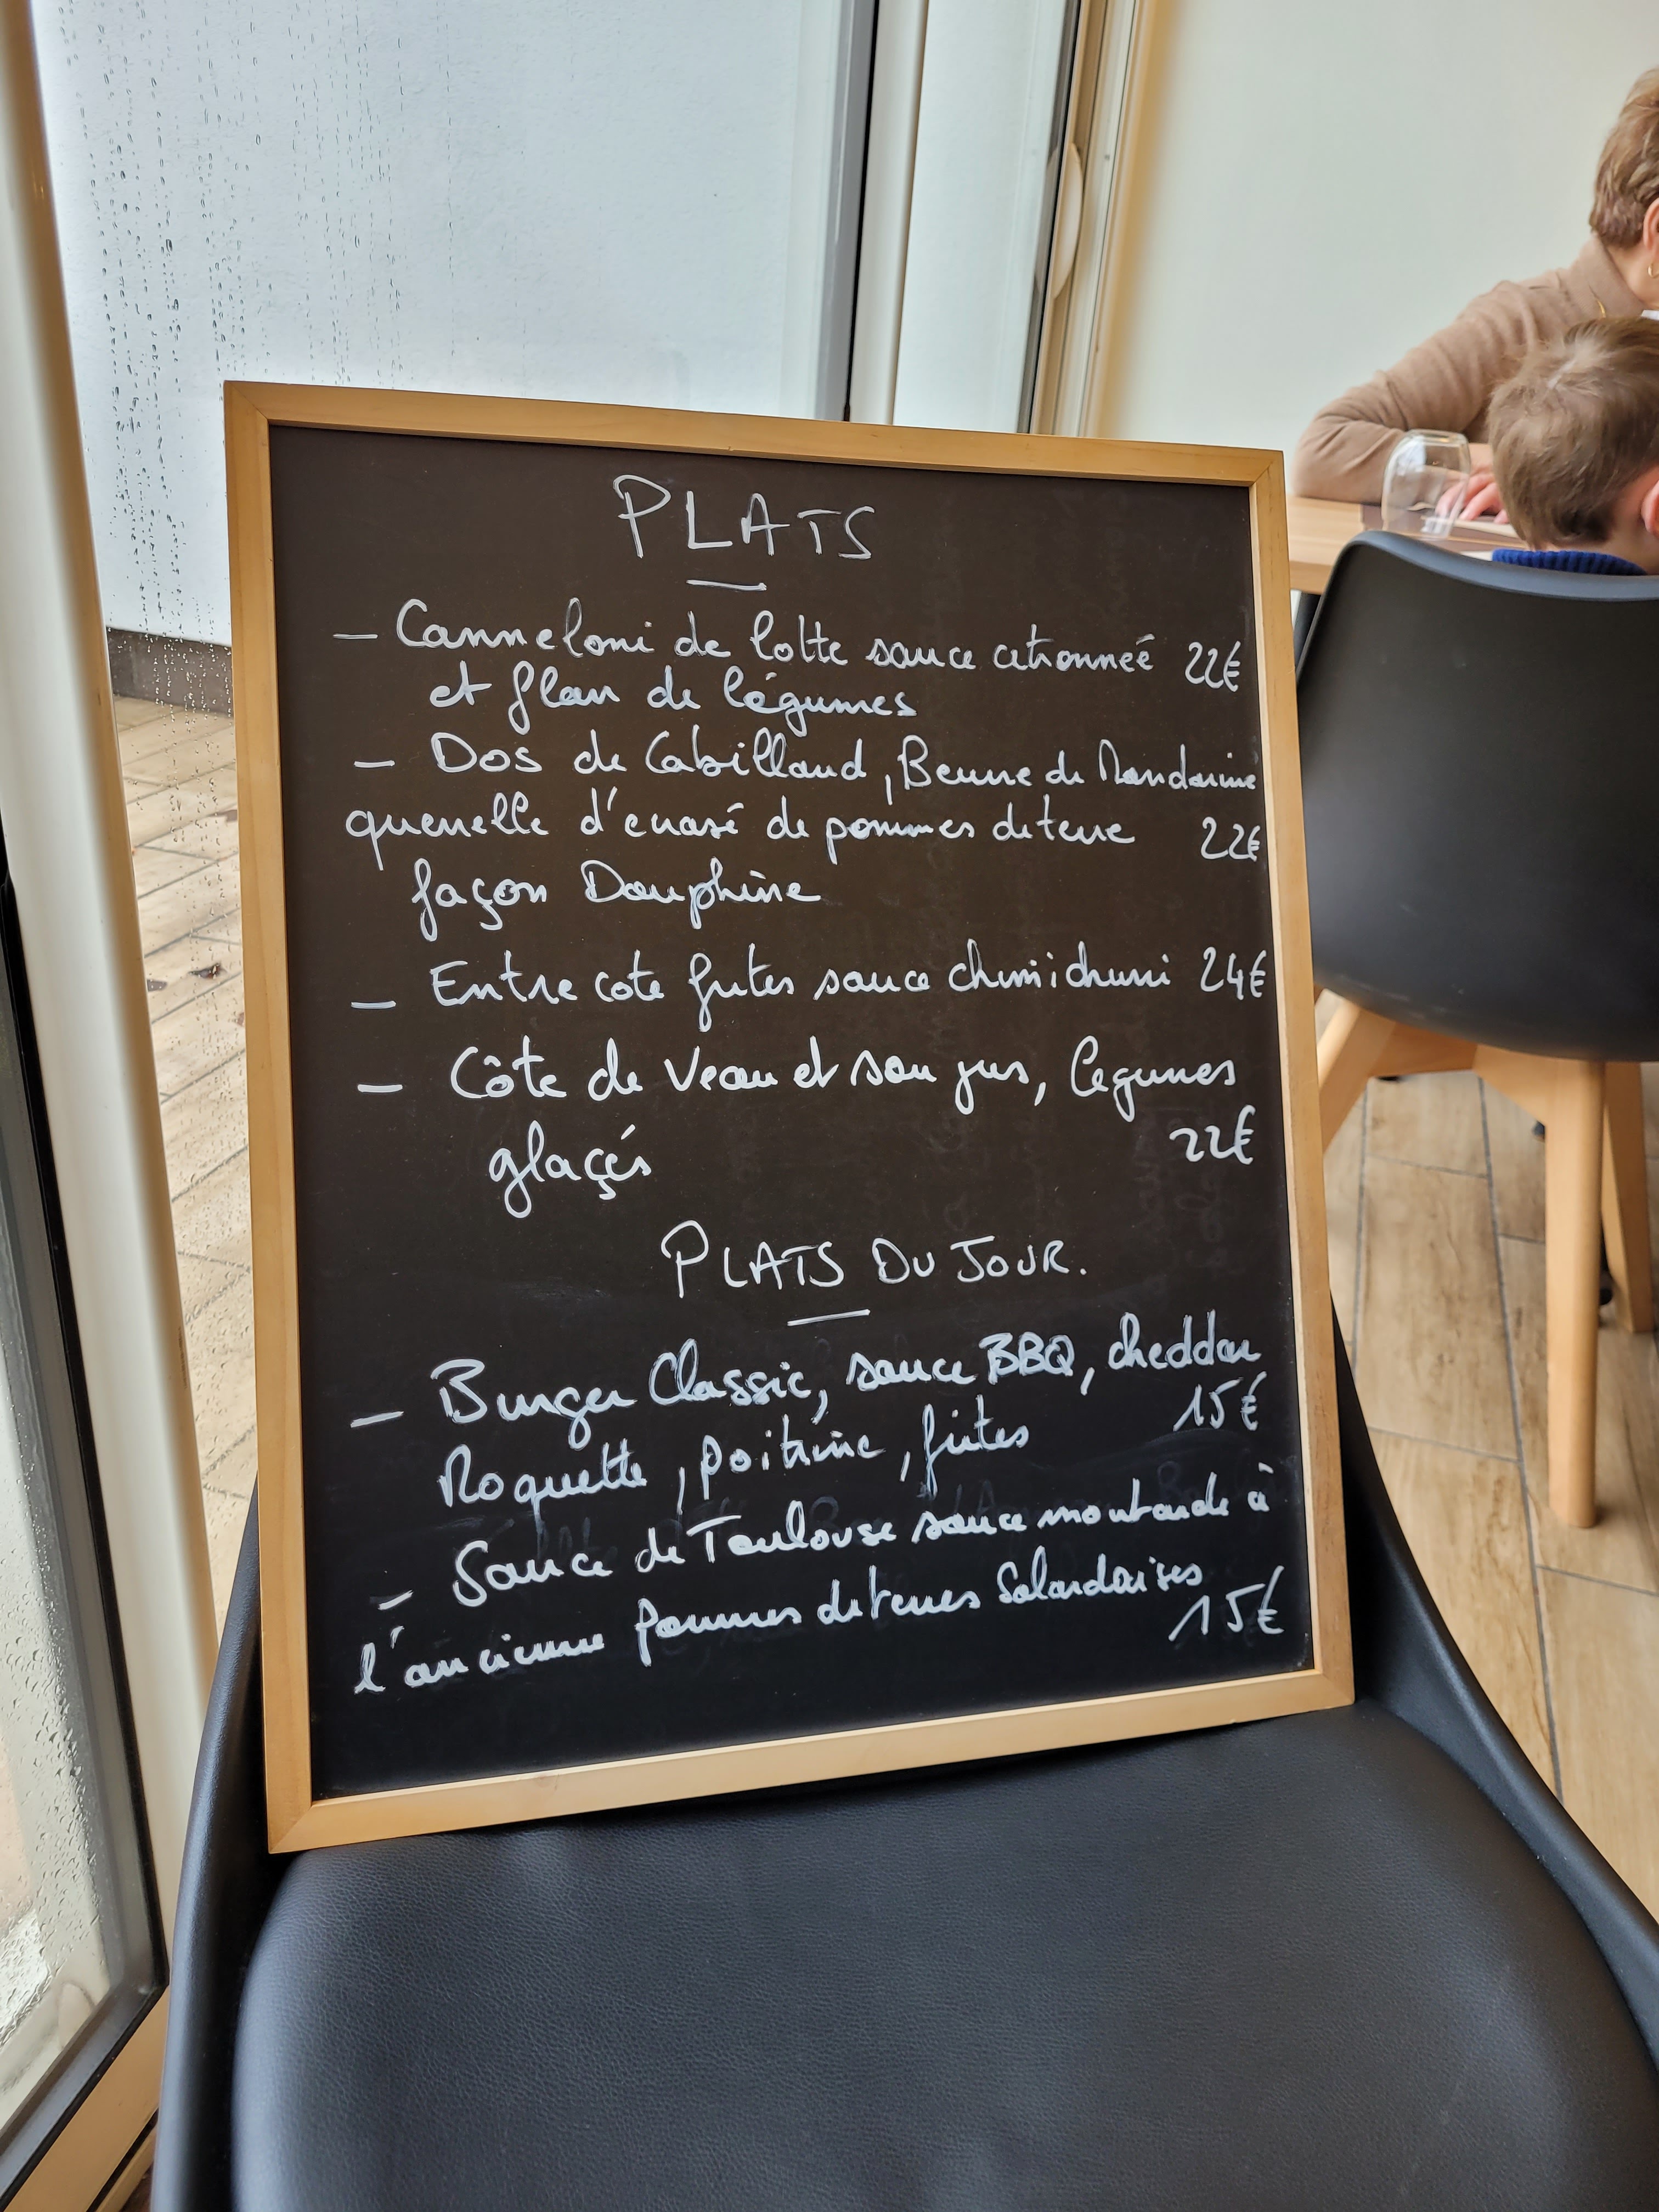 PLATS
- Canneloni de lotte sauce citronneé 22€
et flan de légumes
- Dos de Cabillaud, Beurre de Mandarine
quenelle d'ecrasé de pommes de terre 22€
façon Dauphine
- Entre cote frites sauce chimichurri 24€
- Côte de Veau et son jus, legumes
glaçés 22€
PLATS DU JOUR.
- Burger Classic, sauce BBQ, cheddar
15€
Roquette, poitrine, frites
- Sauce de Toulouse sauce moutarde à
l'ancienne pommes de terres Salardaises
15€